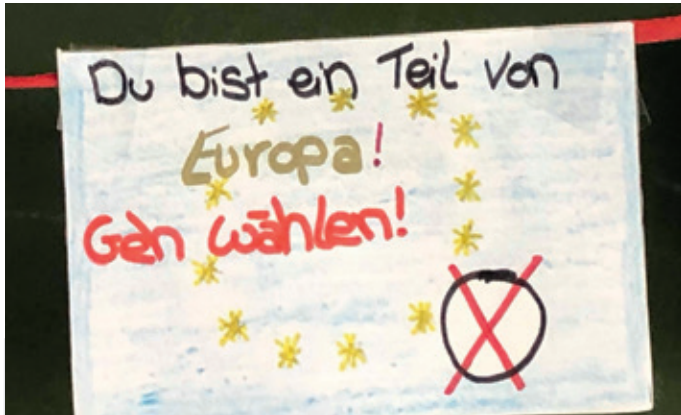 Du bist ein Teil von
Europa!
Geh wählen!